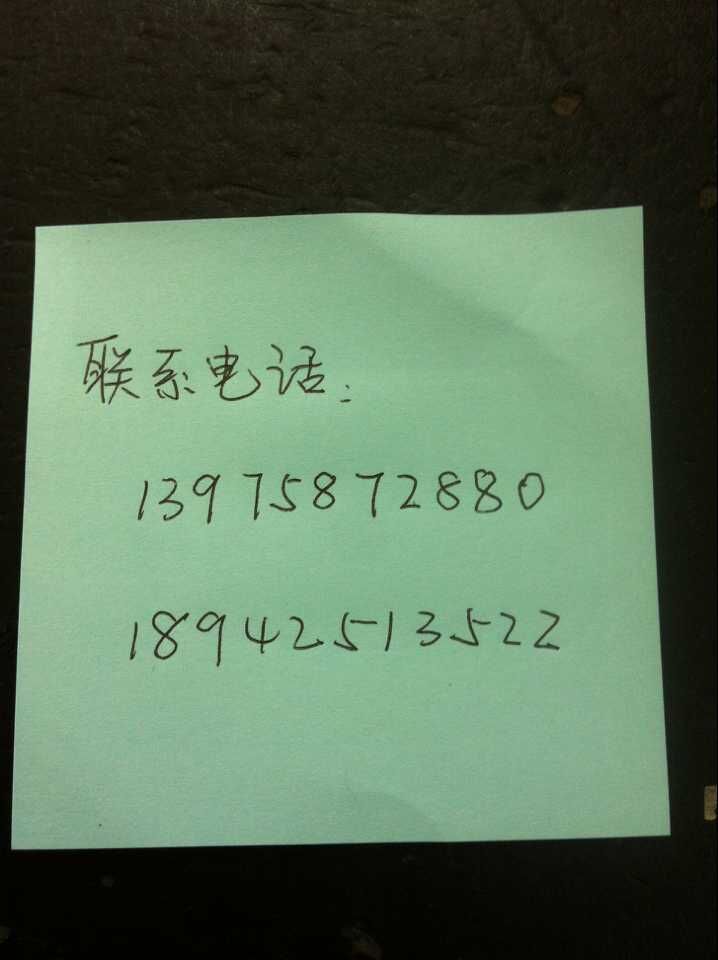 联系电话:
13975872880
18942513522